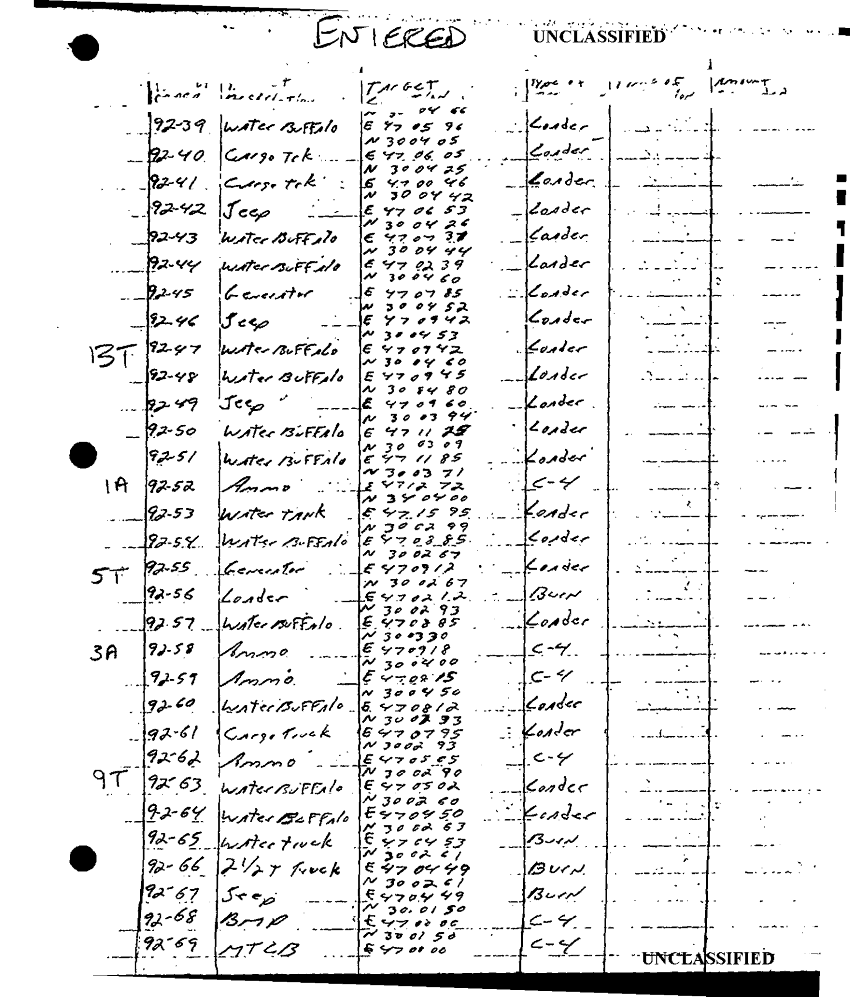 ENTERED UNCLASSIFIED
TARGET
AMOUNT
N 30 04 66
92-39 Water Buffalo E 47 05 96 Loader
N 30 04 05
92-40 Cargo Trk E 47 06 05 Loader
N 30 04 25
92-41 Cargo Trk E 47 00 46 Loader
N 30 04 42
92-42 Jeep E 47 06 53 Loader
N 30 04 26
92-43 Water Buffalo E 47 07 37 Loader
N 30 04 44
92-44 Water Buffalo E 47 02 39 Loader
N 30 04 60
92-45 Generator E 47 07 85 Loader
N 30 04 52
92-46 Jeep E 47 09 42 Loader
N 30 04 53
13T 92-47 Water Buffalo E 47 09 42 Loader
N 30 04 60
92-48 Water Buffalo E 47 09 45 Loader
N 30 84 80
92-49 Jeep E 47 09 60 Loader
N 30 03 94
92-50 Water Buffalo E 47 11 25 Loader
N 30 03 09
92-51 Water Buffalo E 47 11 85 Loader
N 30 03 71
1A 92-52 Ammo E 47 12 72 C-4
N 34 04 00
92-53 Water Tank E 47 15 95 Loader
N 30 02 99
92-54 Water Buffalo E 47 08 85 Loader
N 30 02 67
5T 92-55 Generator E 47 09 12 Loader
N 30 02 67
92-56 Loader E 47 02 12 Burn
N 30 02 93
92-57 Water Buffalo E 47 08 85 Loader
N 30 03 30
3A 92-58 Ammo E 47 09 18 C-4
N 30 04 00
92-59 Ammo E 47 08 15 C-4
N 30 04 50
92-60 Water Buffalo E 47 08 12 Loader
N 30 02 33
92-61 Cargo Truck E 47 07 95 Loader
N 30 02 93
92-62 Ammo E 47 05 05 C-4
N 30 02 90
9T 92-63 Water Buffalo E 47 05 02 Loader
N 30 02 60
92-64 Water Buffalo E 47 04 50 Loader
N 30 02 63
92-65 Water truck E 47 04 53 Burn
N 30 02 61
92-66 2 1/2 T Truck E 47 04 49 Burn
N 30 02 61
92-67 Jeep E 47 04 49 Burn
N 30 01 50
92-68 BMP E 47 00 00 C-4
N 30 01 50
92-69 MTLB E 47 00 00 C-4
UNCLASSIFIED